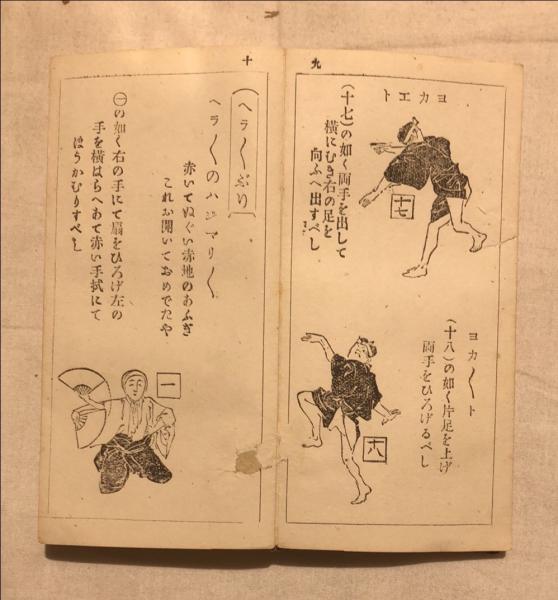 九
ヨカエト
(十七)の如く両手を出して
横にむき右の足を
向ふへ出すべし
十七
ヨカ〱ト
(十八)の如く片足を上げ
両手をひろげるべし
十八
十
(ヘラ〱ぶし)
ヘラ〱のハジマリ〱
赤いてぬぐい赤地のあふぎ
これお開いておめでたや
㊀の如く右の手にて扇をひろげ左の
手を横はらへあて赤い手拭にて
ほうかむりすべし
一